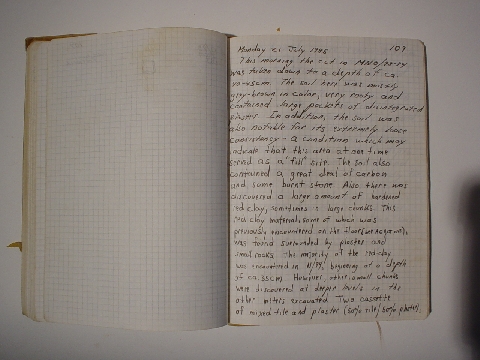 Monday 21 July 1985 109
This morning the cut in
was taken down to a depth of ca.
The soil here was mostly
gray-brown in color, very rocky and
contained large pockets of disintegrated
plaster. In addition, the soil was
also notable for its extremely loose
consistency - a condition which may
indicate that this area at one time
served as a "fill" site. The soil also
contained a great deal of carbon
and some burnt stone. Also, there was
discovered a large amount of hardened
red clay, sometimes in large chunks. This
red clay material, some of which was
previously encountered on the floors
was found surrounded by plaster and
small rocks. The majority of the red clay
was encountered in beginning at a depth
of ca. 55cm. However, other small chunks
were discovered at deeper levels in the
other meters excavated. Two cassette
of mixed tile and plaster (50% tile/50% plaster).